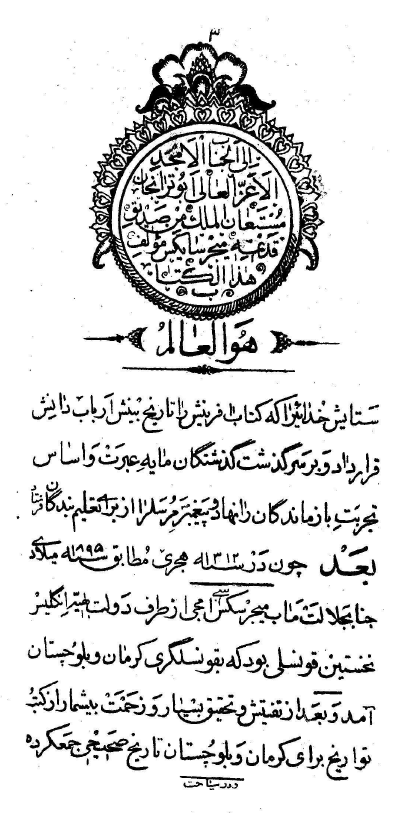 ۳
الی الجناب الامجد
الاعز العالی
مستعان الملک من صدیق
قدیمه میجر سایکس مؤلف
هذا الکتاب
هوالعالم
ستایش خدائیرا که کتاب افرینش را تاریخ بینش ارباب دانش
قرار داد و بر سرگذشت گذشتگان مایه عبرت و اساس
تجربت بازماندگان را نهاد و پیغمبر مرسل را از برای تعلیم بندگان فرستاد
بعد چون در سنه ۱۳۱۳ هجری مطابق سنه ۱۸۹۵ میلادی
جنابجلالت ماب میجر سکس سی ام جی از طرف دولت بهیه انگلیز
نخستین قونسلی بود که بقونسلگری کرمان و بلوچستان
آمد و بعد از تفتیش و تحقیق بسیار و زحمت بیشمار از کتب
تواریخ برای کرمان و بلوچستان تاریخ صحیحی جمعکرده
و در سیاحت